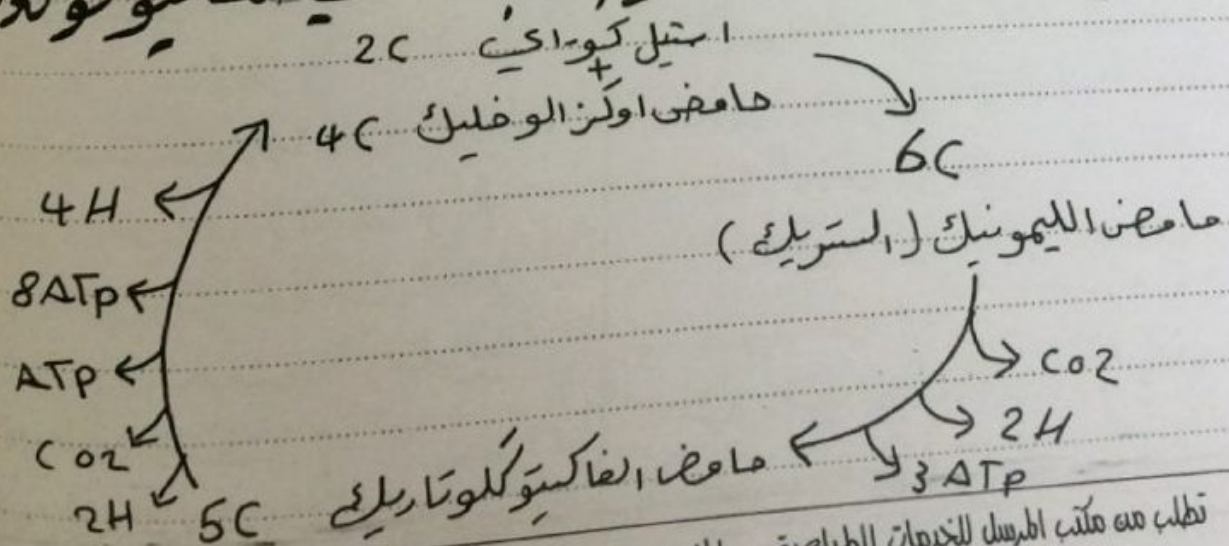 2C استيل كو-اي
+
4C حامض اوكز الوخليك
6C
حامض الليمونيك (الستريك)
CO2
2H
3 ATP
5C حامض الفاكيتوگلوتاريك
2H
CO2
ATP
8ATP
4H
تطلب من مكتب المرسل للخدمات الطباعية